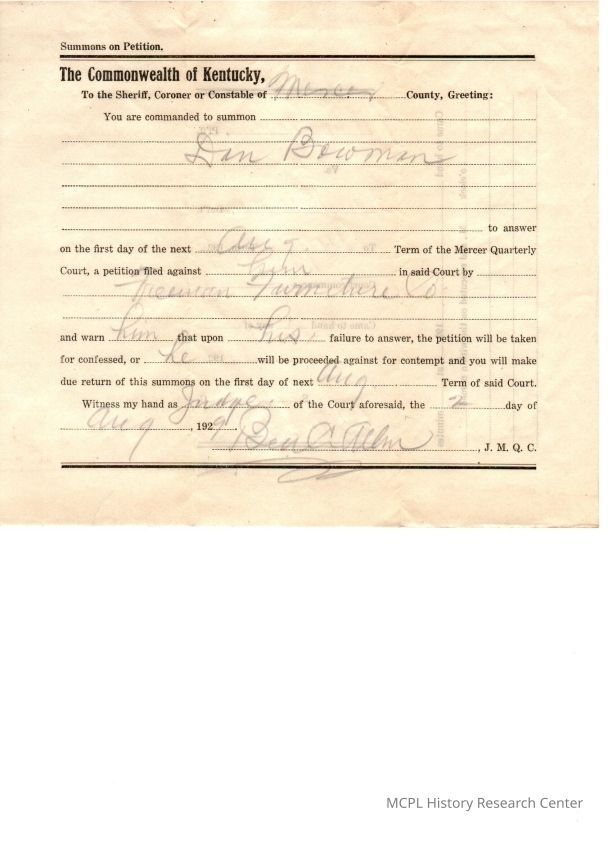 Summons on Petition.
The Commonwealth of Kentucky,
To the Sheriff, Coroner or Constable of Mercer County, Greeting:
You are commanded to summon
Dan Bowman
to answer
on the first day of the next Aug Term of the Mercer Quarterly
Court, a petition filed against him in said Court by
Freeman Furniture Co
and warn him that upon his failure to answer, the petition will be taken
for confessed, or he will be proceeded against for contempt and you will make
due return of this summons on the first day of next Aug Term of said Court.
Witness my hand as Judge of the Court aforesaid, the 2 day of
Aug, 1929
Ben C. Allin, J. M. Q. C.
MCPL History Research Center